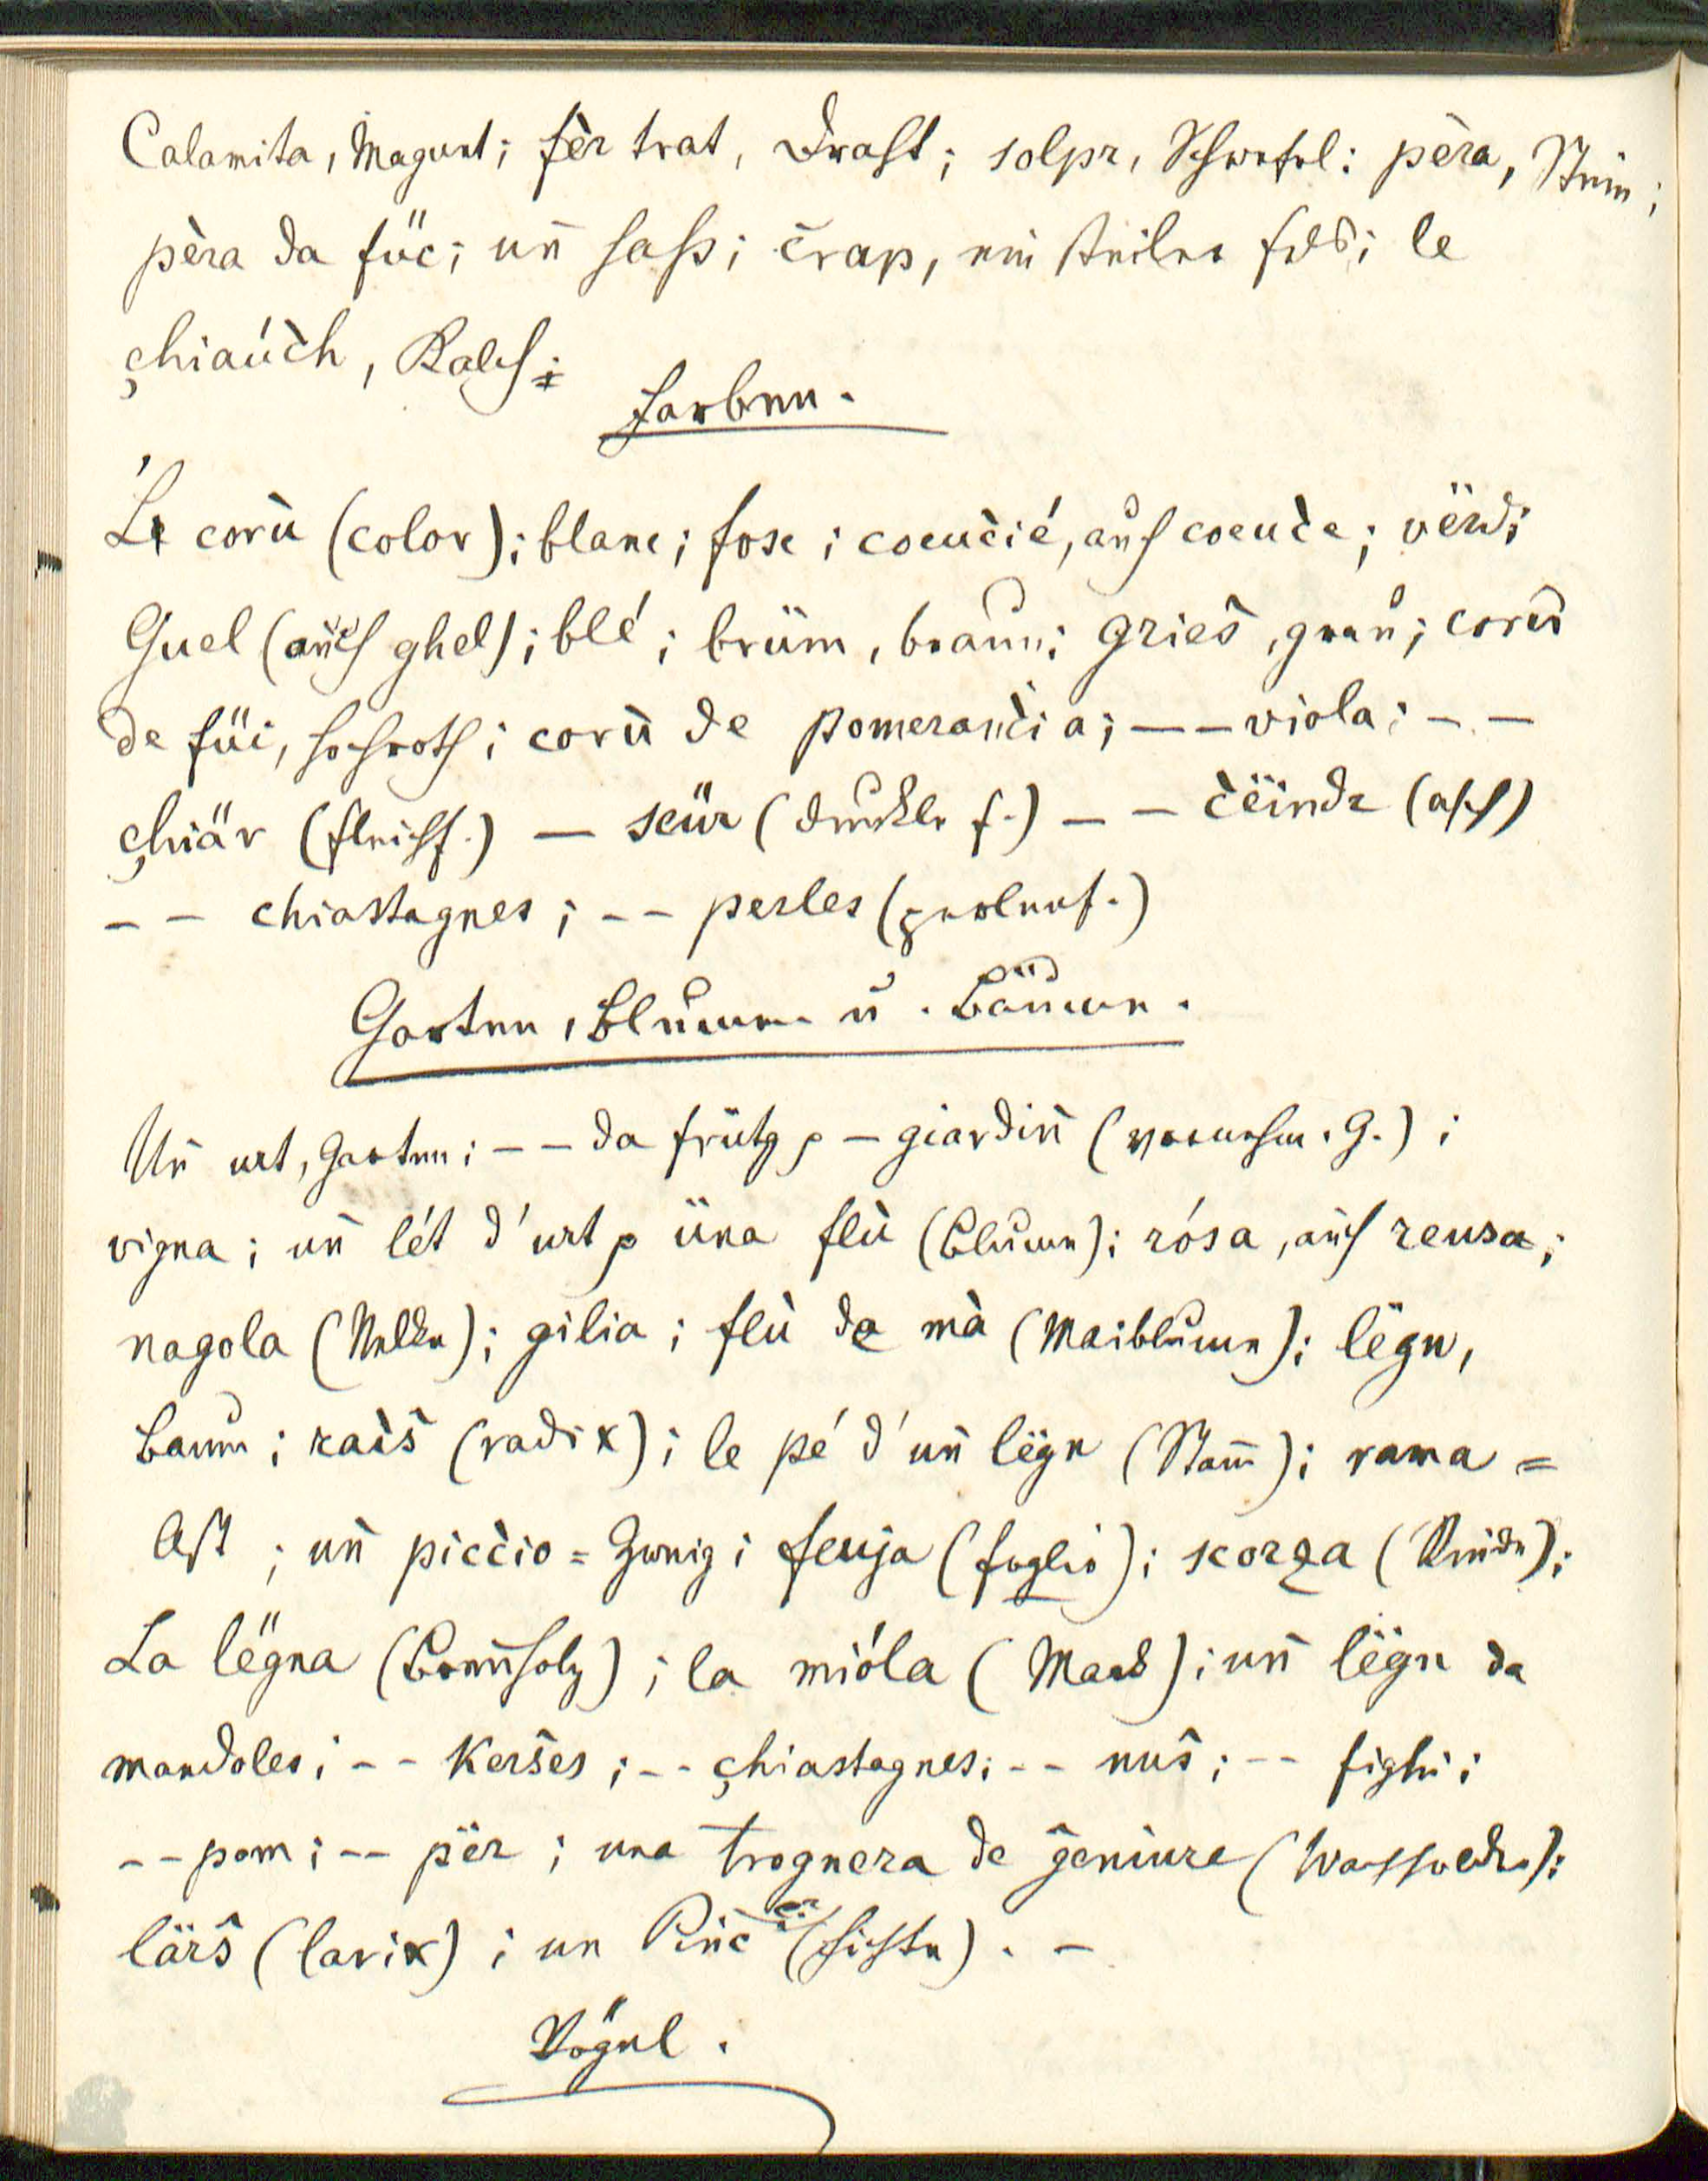 Calamita, Magnet; fèr trat, Draht; solpr, Schwefel; pèra, Stein;
pèra da füc; uñ saß; črap, ein steiler Fels; le
çhiaúćh, Kalch;
Farben.
Le corù (color); blanc; fosc; cocučić, auch cocuče; vërd;
Guel (auch ghel); blé; brüm, braun; gries̄, grau; corù
de füi, hochroth; corù de pomerančia; — — viola; — —
çhiär (fleischf.) — scür (dunkle f.) — — čëindr (asch)
— — chiastagnes; — — perles (perlenf.)
Garten, Blumen u. Bäume.
Uñ urt, Garten; — — da frütg; — giardiñ (vornehm. G.);
vigna; uñ lét d'urt; üna flù (Blume); rósa, auch reusa;
nagola (Nelke); gilia; flù da mà (Maiblume); lëgn,
Baum; raìs̄ (radix); le pé d'uñ lëgn (Stam̄); rama =
Ast; uñ piccio = Zweig; feuja (foglio); scorza (Rinde);
La lëgna (Brennholz); la mióla (Mark); uñ lëgn da
mandoles; — — kers̄es; — — çhiastagnes; — — nus̄; — — fighi;
— — pom; — — për; una trognera de geniure (Wachholder);
lärs̄ (larix); un Pinč (Fichte). —
Vögel.